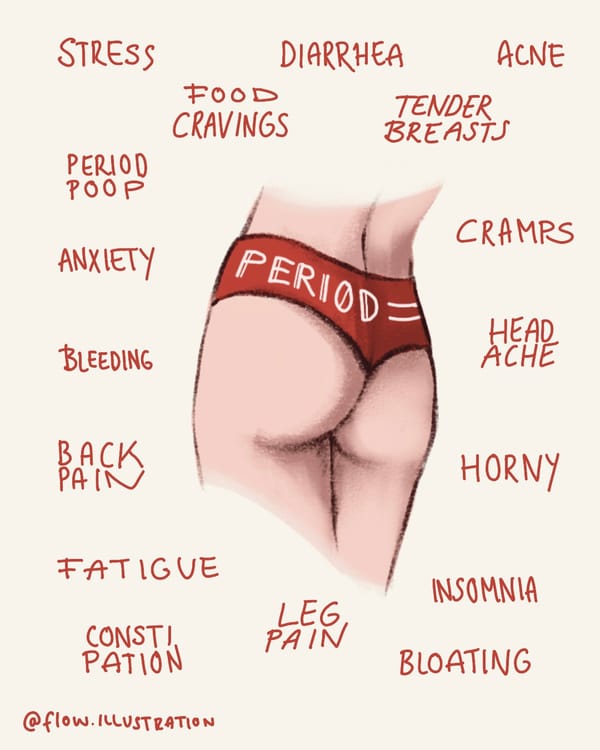 STRESS
DIARRHEA
ACNE
FOOD
CRAVINGS
TENDER
BREASTS
PERIOD
POOP
CRAMPS
ANXIETY
PERIOD =
HEAD
ACHE
BLEEDING
BACK
PAIN
HORNY
FATIGUE
INSOMNIA
LEG
PAIN
CONSTI
PATION
BLOATING
@flow.ILLUSTRATION